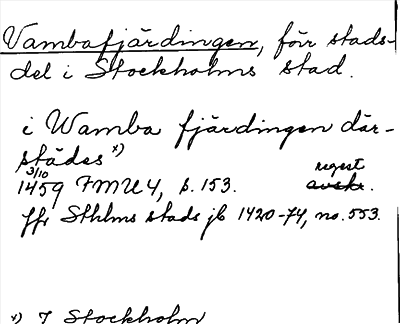 Vambafjärdingen, förr stads-
del i Stockholms stad.
i Wamba fjärdingen där-
städes x)
3/10
1459 FMU 4, s. 153. regest
avskr.
Jfr Sthlms stads jb 1420-74, no. 553.
x) I Stockholm